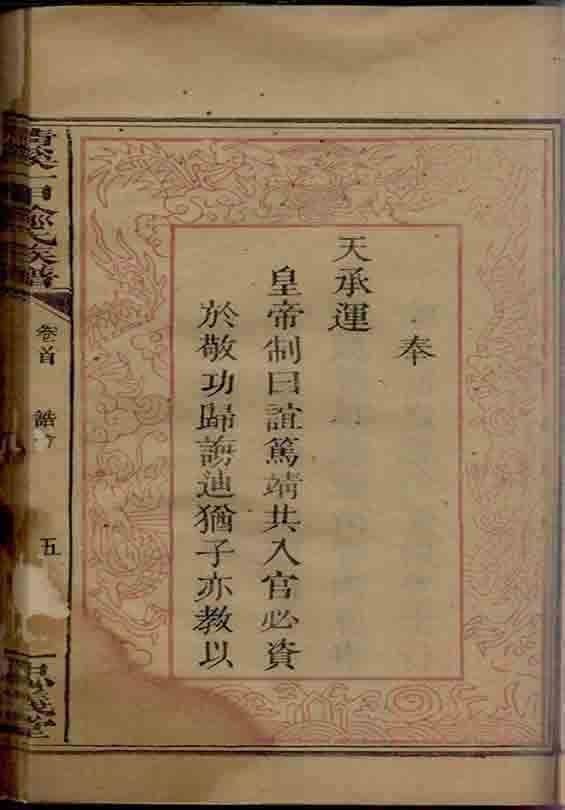 奉
天承運
皇帝制曰誼篤靖共入官必資
於敬功歸誨迪猶子亦教以
氏族譜
卷首
誥
五
義堂